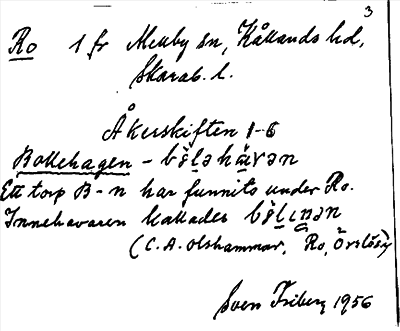 3
Ro 1 fr Mellby sn, Kållands hd,
Skarab. l.
Åkerskiften 1-6
Bollehagen -
Ett torp B-n har funnits under Ro.
Innehavaren kallades
(C.A. Olshammar, Ro, Örslösa)
Sven Friberg 1956